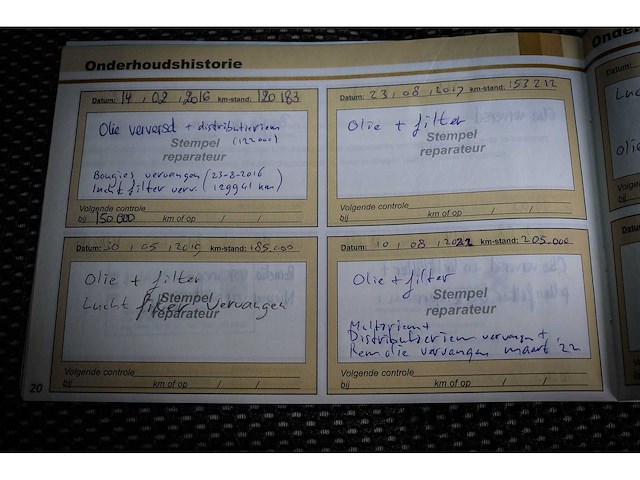 Onderhoudshistorie
Datum: 14 , 02 , 2016 km-stand: 120183
Olie ververst + distributieriem
(122000)
Stempel
reparateur
Bougies vervangen (23-8-2016
lucht filter verv. (129941 km)
Volgende controle
bij 150 000 km of op / /
Datum: 23 , 08 , 2017 km-stand: 153212
Olie + filter
Stempel
reparateur
Volgende controle
bij km of op / /
Datum: 30 , 05 , 2019 km-stand: 185.000
Olie + filter
Lucht filter vervangen
Stempel
reparateur
Volgende controle
bij km of op / /
Datum: 10 , 08 , 2022 km-stand: 205.000
Olie + filter
Stempel
reparateur
Multiriem +
Distributieriem vervangen +
Remolie vervangen maart '22
Volgende controle
bij km of op / /
20
Onder
Datum:
Luc
olie
Volgende
bij
Datum:
Volgen
bij